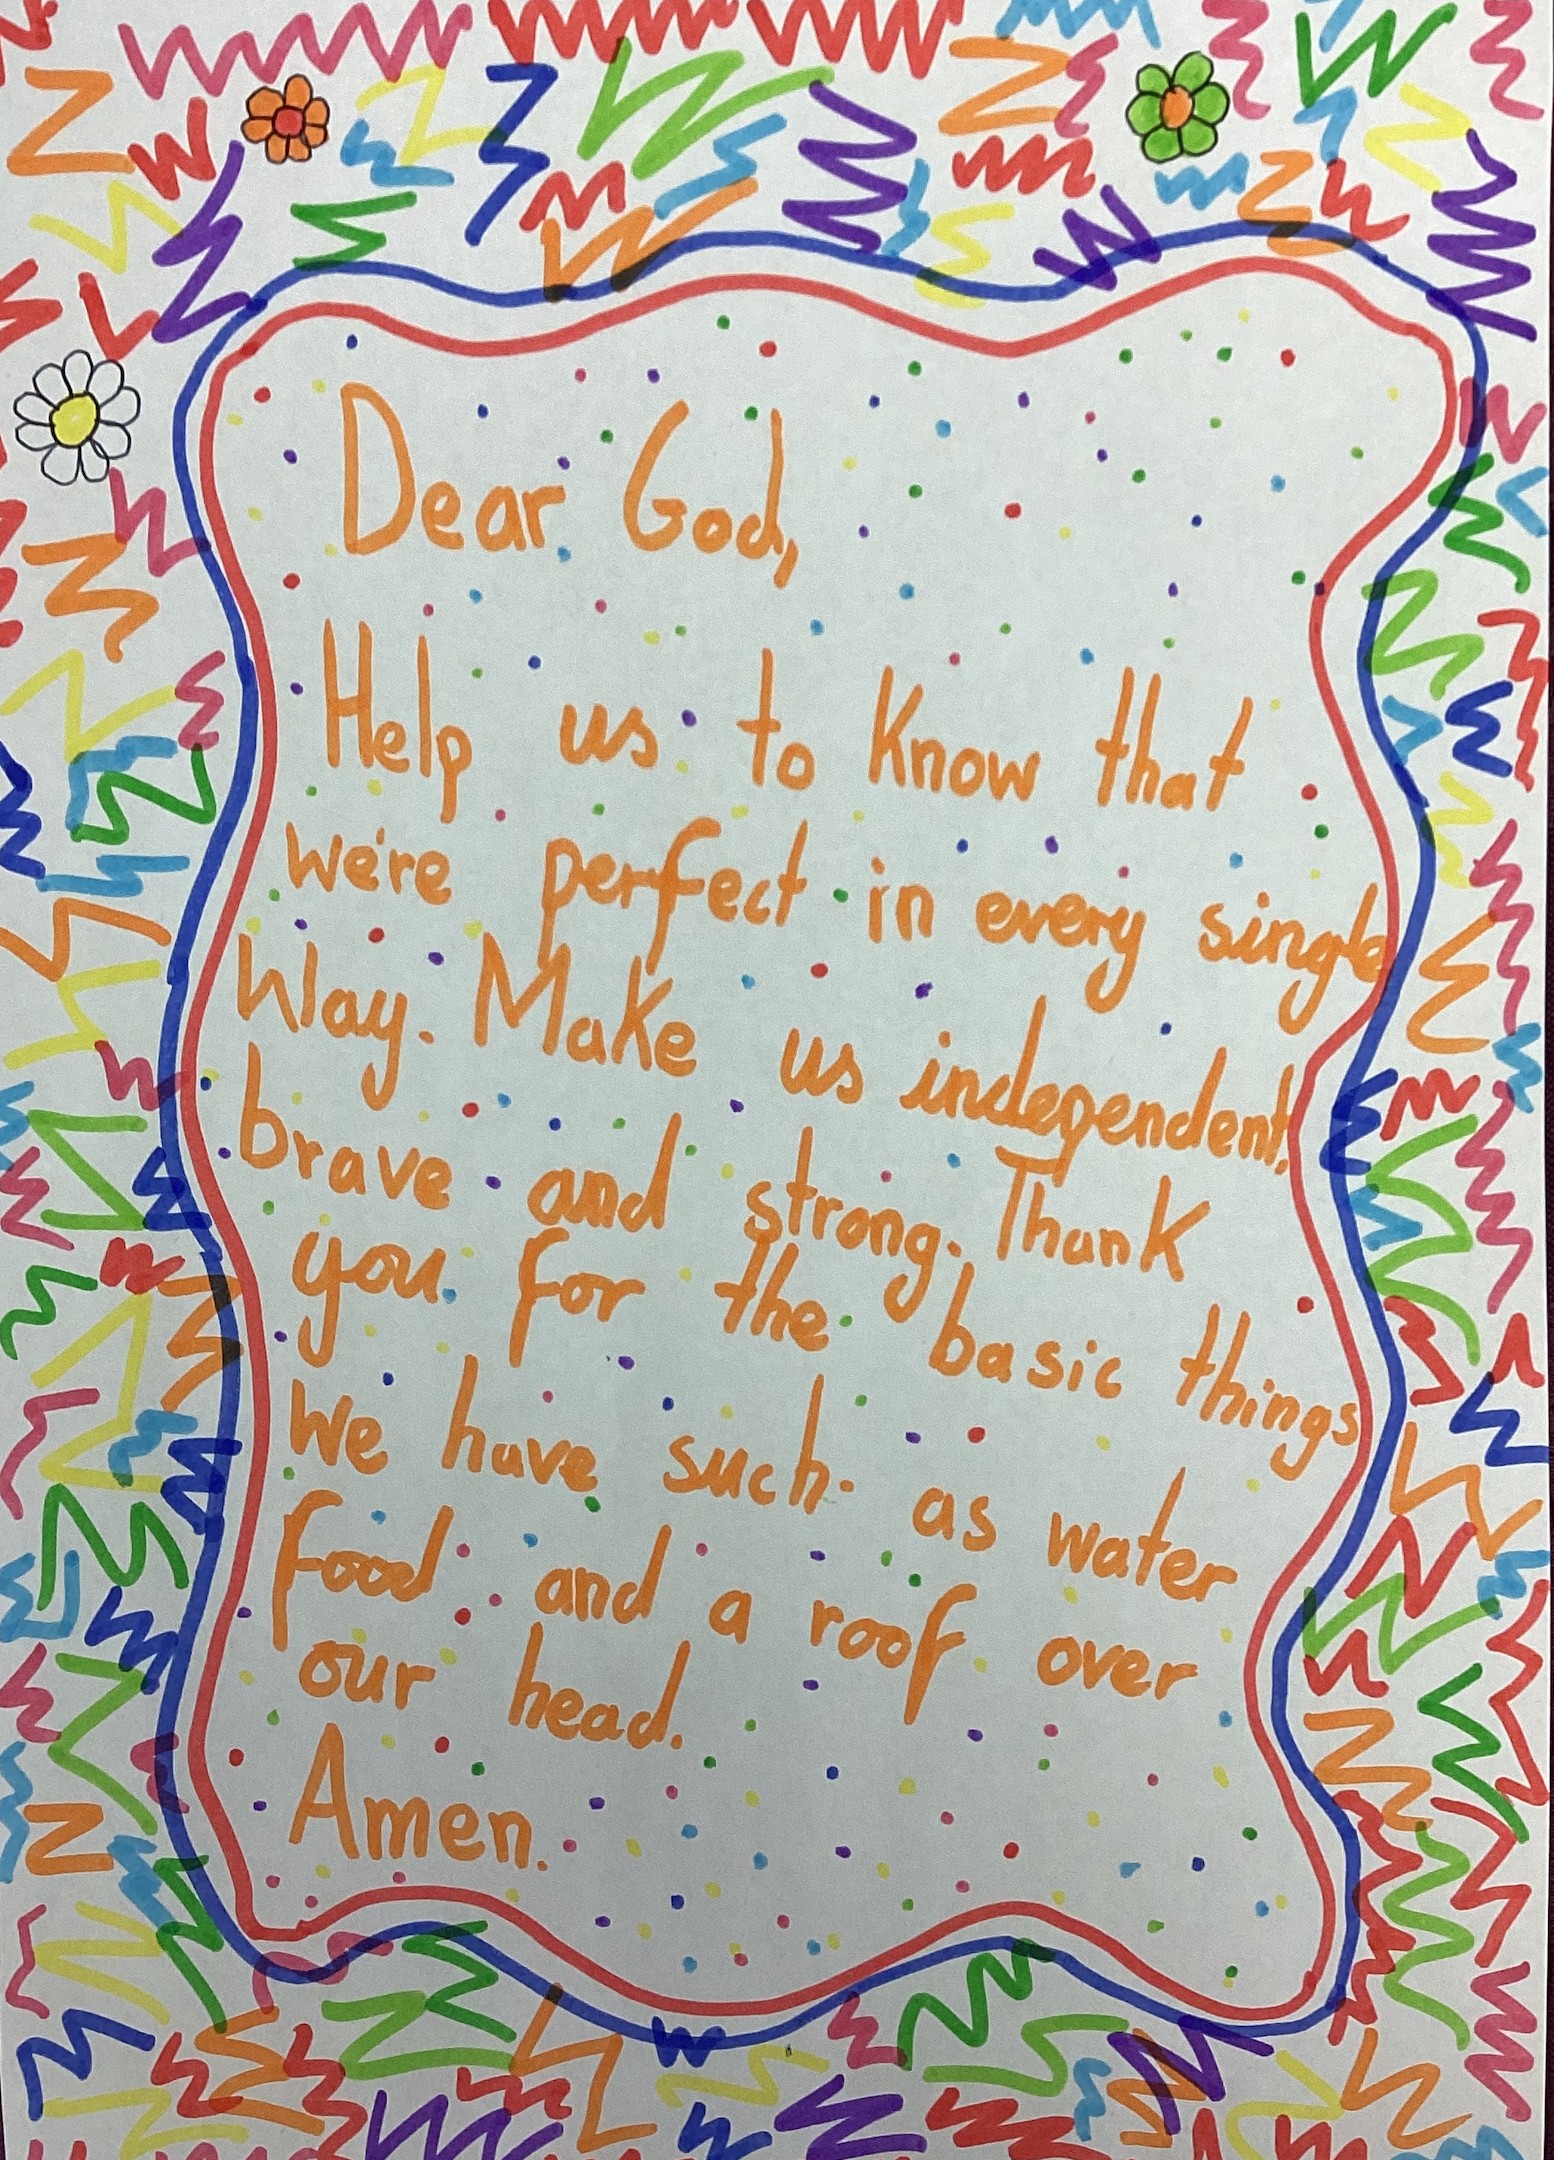 Dear God,
Help us to know that
we're perfect in every single
Way. Make us independent,
brave and strong. Thank
you for the basic things
We have such as water
food and a roof over
our head.
Amen.